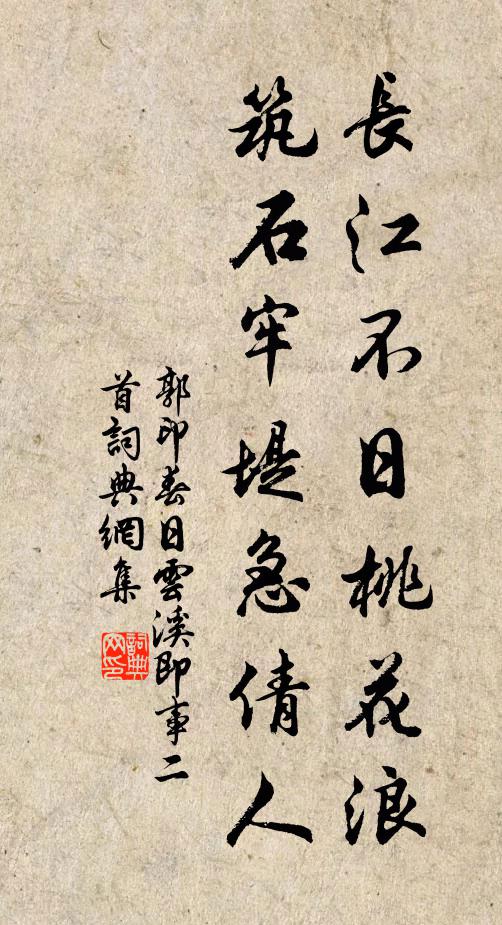 長江不日桃花浪
筑石牢堤急倩人
郭印春日雲溪即事二
首詞典網集
詞典
网印